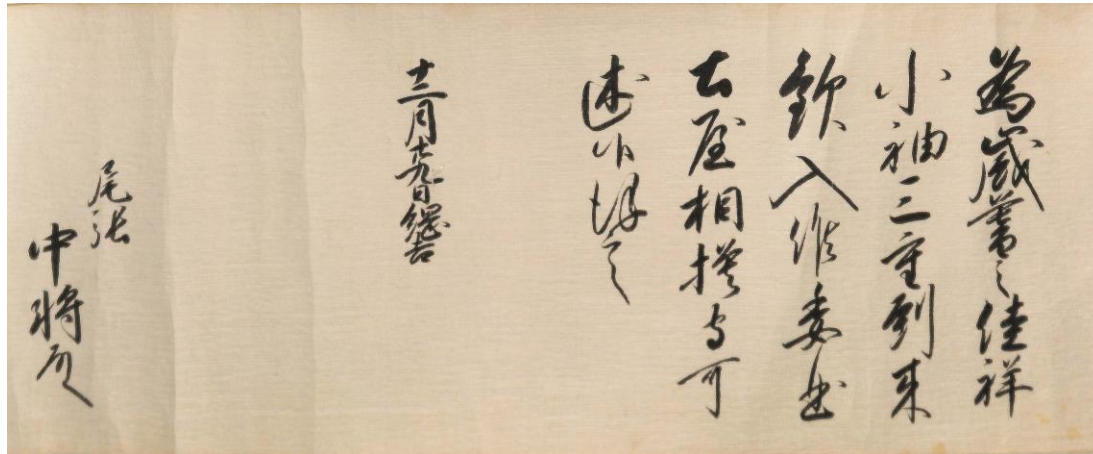 為歳暮之佳祥
小袖三重到来
歓入候委曲
土屋相摸守可
述候謹言
十二月廿九日綱吉
尾張
中将殿